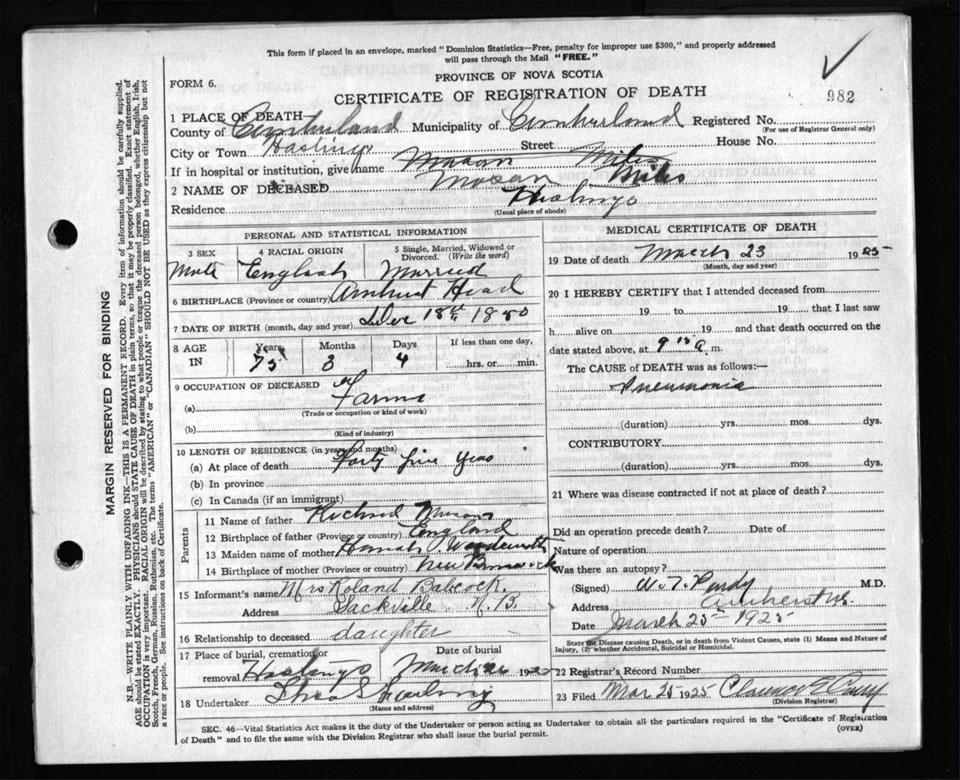 This form if placed in an envelope, marked "Dominion Statistics—Free, penalty for improper use $300," and properly addressed
will pass through the Mail "FREE."
PROVINCE OF NOVA SCOTIA
FORM 6.
CERTIFICATE OF REGISTRATION OF DEATH
982
1 PLACE OF DEATH
County of Cumberland Municipality of Cumberland Registered No.
(For use of Registrar General only)
City or Town Hastings Street House No.
If in hospital or institution, give name Mason Miles
2 NAME OF DECEASED Mason Miles
Residence Hastings
(Usual place of abode)
PERSONAL AND STATISTICAL INFORMATION
3 SEX 4 RACIAL ORIGIN 5 Single, Married, Widowed or Divorced. (Write the word)
Male English Married
6 BIRTHPLACE (Province or country) Amherst Head
7 DATE OF BIRTH (month, day and year) 18th 1850
8 AGE IN Years Months Days If less than one day,
75 3 4 hrs. or min.
9 OCCUPATION OF DECEASED
(a) Farmer
(Trade or occupation or kind of work)
(b)
(Kind of industry)
10 LENGTH OF RESIDENCE (in years and months)
(a) At place of death Forty five years
(b) In province
(c) In Canada (if an immigrant)
Parents
11 Name of father Richard Mason
12 Birthplace of father (Province or country) England
13 Maiden name of mother Hannah Woodworth
14 Birthplace of mother (Province or country) New Brunswick
15 Informant's name Mrs Roland Babcock
Address Sackville N.B.
16 Relationship to deceased daughter
17 Place of burial, cremation or removal Hastings Date of burial March 26 1925
18 Undertaker
(Name and address)
MEDICAL CERTIFICATE OF DEATH
19 Date of death March 23 1925
(Month, day and year)
20 I HEREBY CERTIFY that I attended deceased from
19 to 19 that I last saw
h alive on 19 and that death occurred on the
date stated above, at 9 a m.
The CAUSE of DEATH was as follows:—
Pneumonia
(duration) yrs. mos. dys.
CONTRIBUTORY
(duration) yrs. mos. dys.
21 Where was disease contracted if not at place of death?
Did an operation precede death? Date of
Nature of operation
Was there an autopsy?
(Signed) W. T. Purdy M.D.
Address Amherst N.S.
Date March 25th 1925
State the Disease causing Death, or in death from Violent Causes, state (1) Means and Nature of
Injury, (2) whether Accidental, Suicidal or Homicidal.
22 Registrar's Record Number
23 Filed Mar 25 1925 Clarence
(Division Registrar)
SEC. 46—Vital Statistics Act makes it the duty of the Undertaker or person acting as Undertaker to obtain all the particulars required in the "Certificate of Registration
of Death" and to file the same with the Division Registrar who shall issue the burial permit.
(OVER)
MARGIN RESERVED FOR BINDING
N.B.—WRITE PLAINLY WITH UNFADING INK—THIS IS A PERMANENT RECORD. Every item of information should be carefully supplied.
AGE should be stated EXACTLY. PHYSICIANS should STATE CAUSE OF DEATH in plain terms, so that it may be properly classified. Exact statement of
OCCUPATION is very important. RACIAL ORIGIN will be described by stating to what people or tongue the deceased person belonged, whether English, Irish,
Scotch, French, German, Russian, Ruthenian, etc. The terms "AMERICAN" or "CANADIAN" SHOULD NOT BE USED as they express citizenship but not
a race or people. See instructions on back of Certificate.